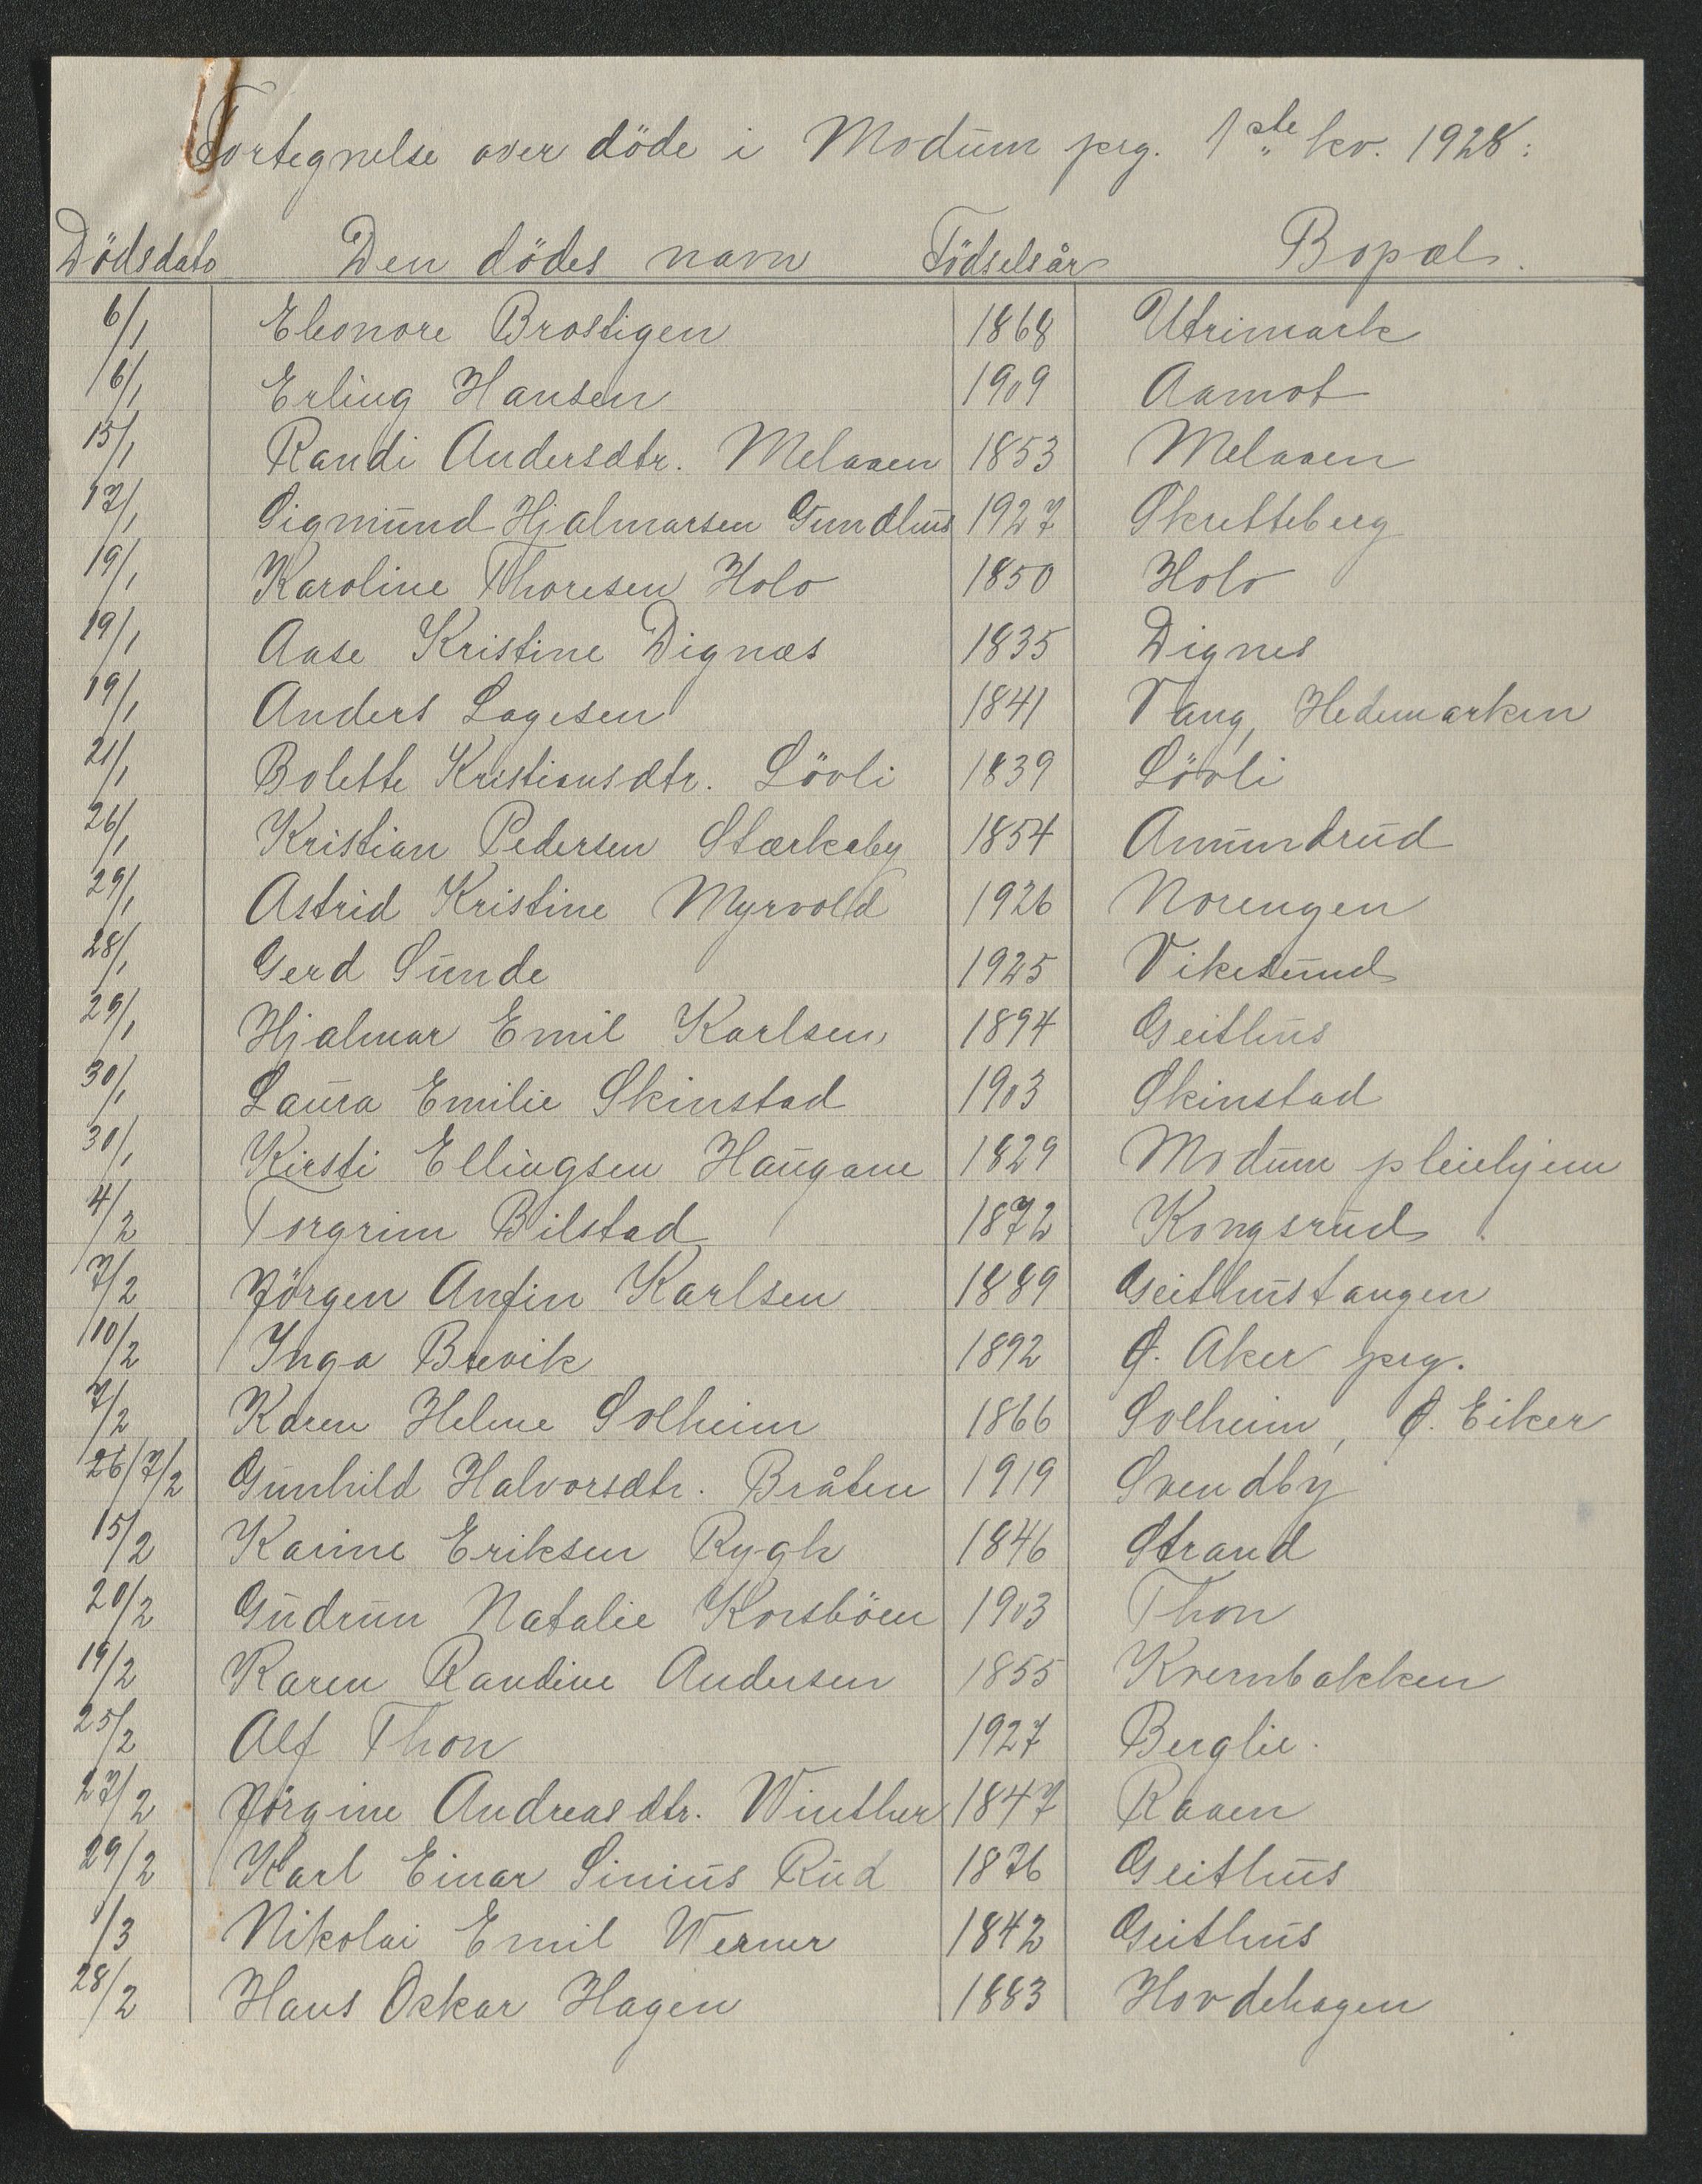 Fortegnelse over döde i Modum prg. 1ste kv. 1928:
Dödsdato Den dödes navn Födselsår Bopæl.
6/1 Eleonore Brostigen 1868 Utrimark
16/1 Erling Hansen 1909 Aamot
15/1 Randi Andersdtr. Melaaen 1853 Melaaen
17/1 Sigmund Hjalmarsen Gundhus 1927 Skretteberg
19/1 Karoline Thoresen Holo 1850 Holo
19/1 Aase Kristine Dignæs 1835 Dignes
19/1 Anders Lagesen 1841 Vang, Hedemarken
21/1 Bolette Kristiansdtr. Lövli 1839 Lövli
26/1 Kristian Pedersen Stærkeby 1854 Amundrud
29/1 Astrid Kristine Myrvold 1926 Norengen
28/1 Gerd Sunde 1925 Vikesund
29/1 Hjalmar Emil Karlsen 1894 Geithus
30/1 Laura Emilie Skinstad 1903 Skinstad
30/1 Kirsti Ellingsen Haugane 1829 Modum pleiehjem
4/2 Torgrim Bilstad 1872 Kongsrud
7/2 Jörgen Anfin Karlsen 1889 Geithustangen
10/2 Inga Brevik 1892 Ø. Aker prg.
7/2 Karen Helene Solheim 1866 Solheim, Ø. Eiker
26/7/2 Gunhild Halvorsdtr. Bråten 1919 Svendby
15/2 Karine Eriksen Rygh 1846 Strand
20/2 Gudrun Natalie Korsböen 1903 Thon
19/2 Karen Randine Andersen 1855 Kvernbakken
25/2 Alf Thon 1927 Berglie.
27/2 Jörgine Andreasdtr. Winther 1847 Raaen
29/2 Karl Einar Sinius Rud 1876 Geithus
1/3 Nikolai Emil Werner 1842 Geithus
28/2 Hans Oskar Hagen 1883 Hovdehagen